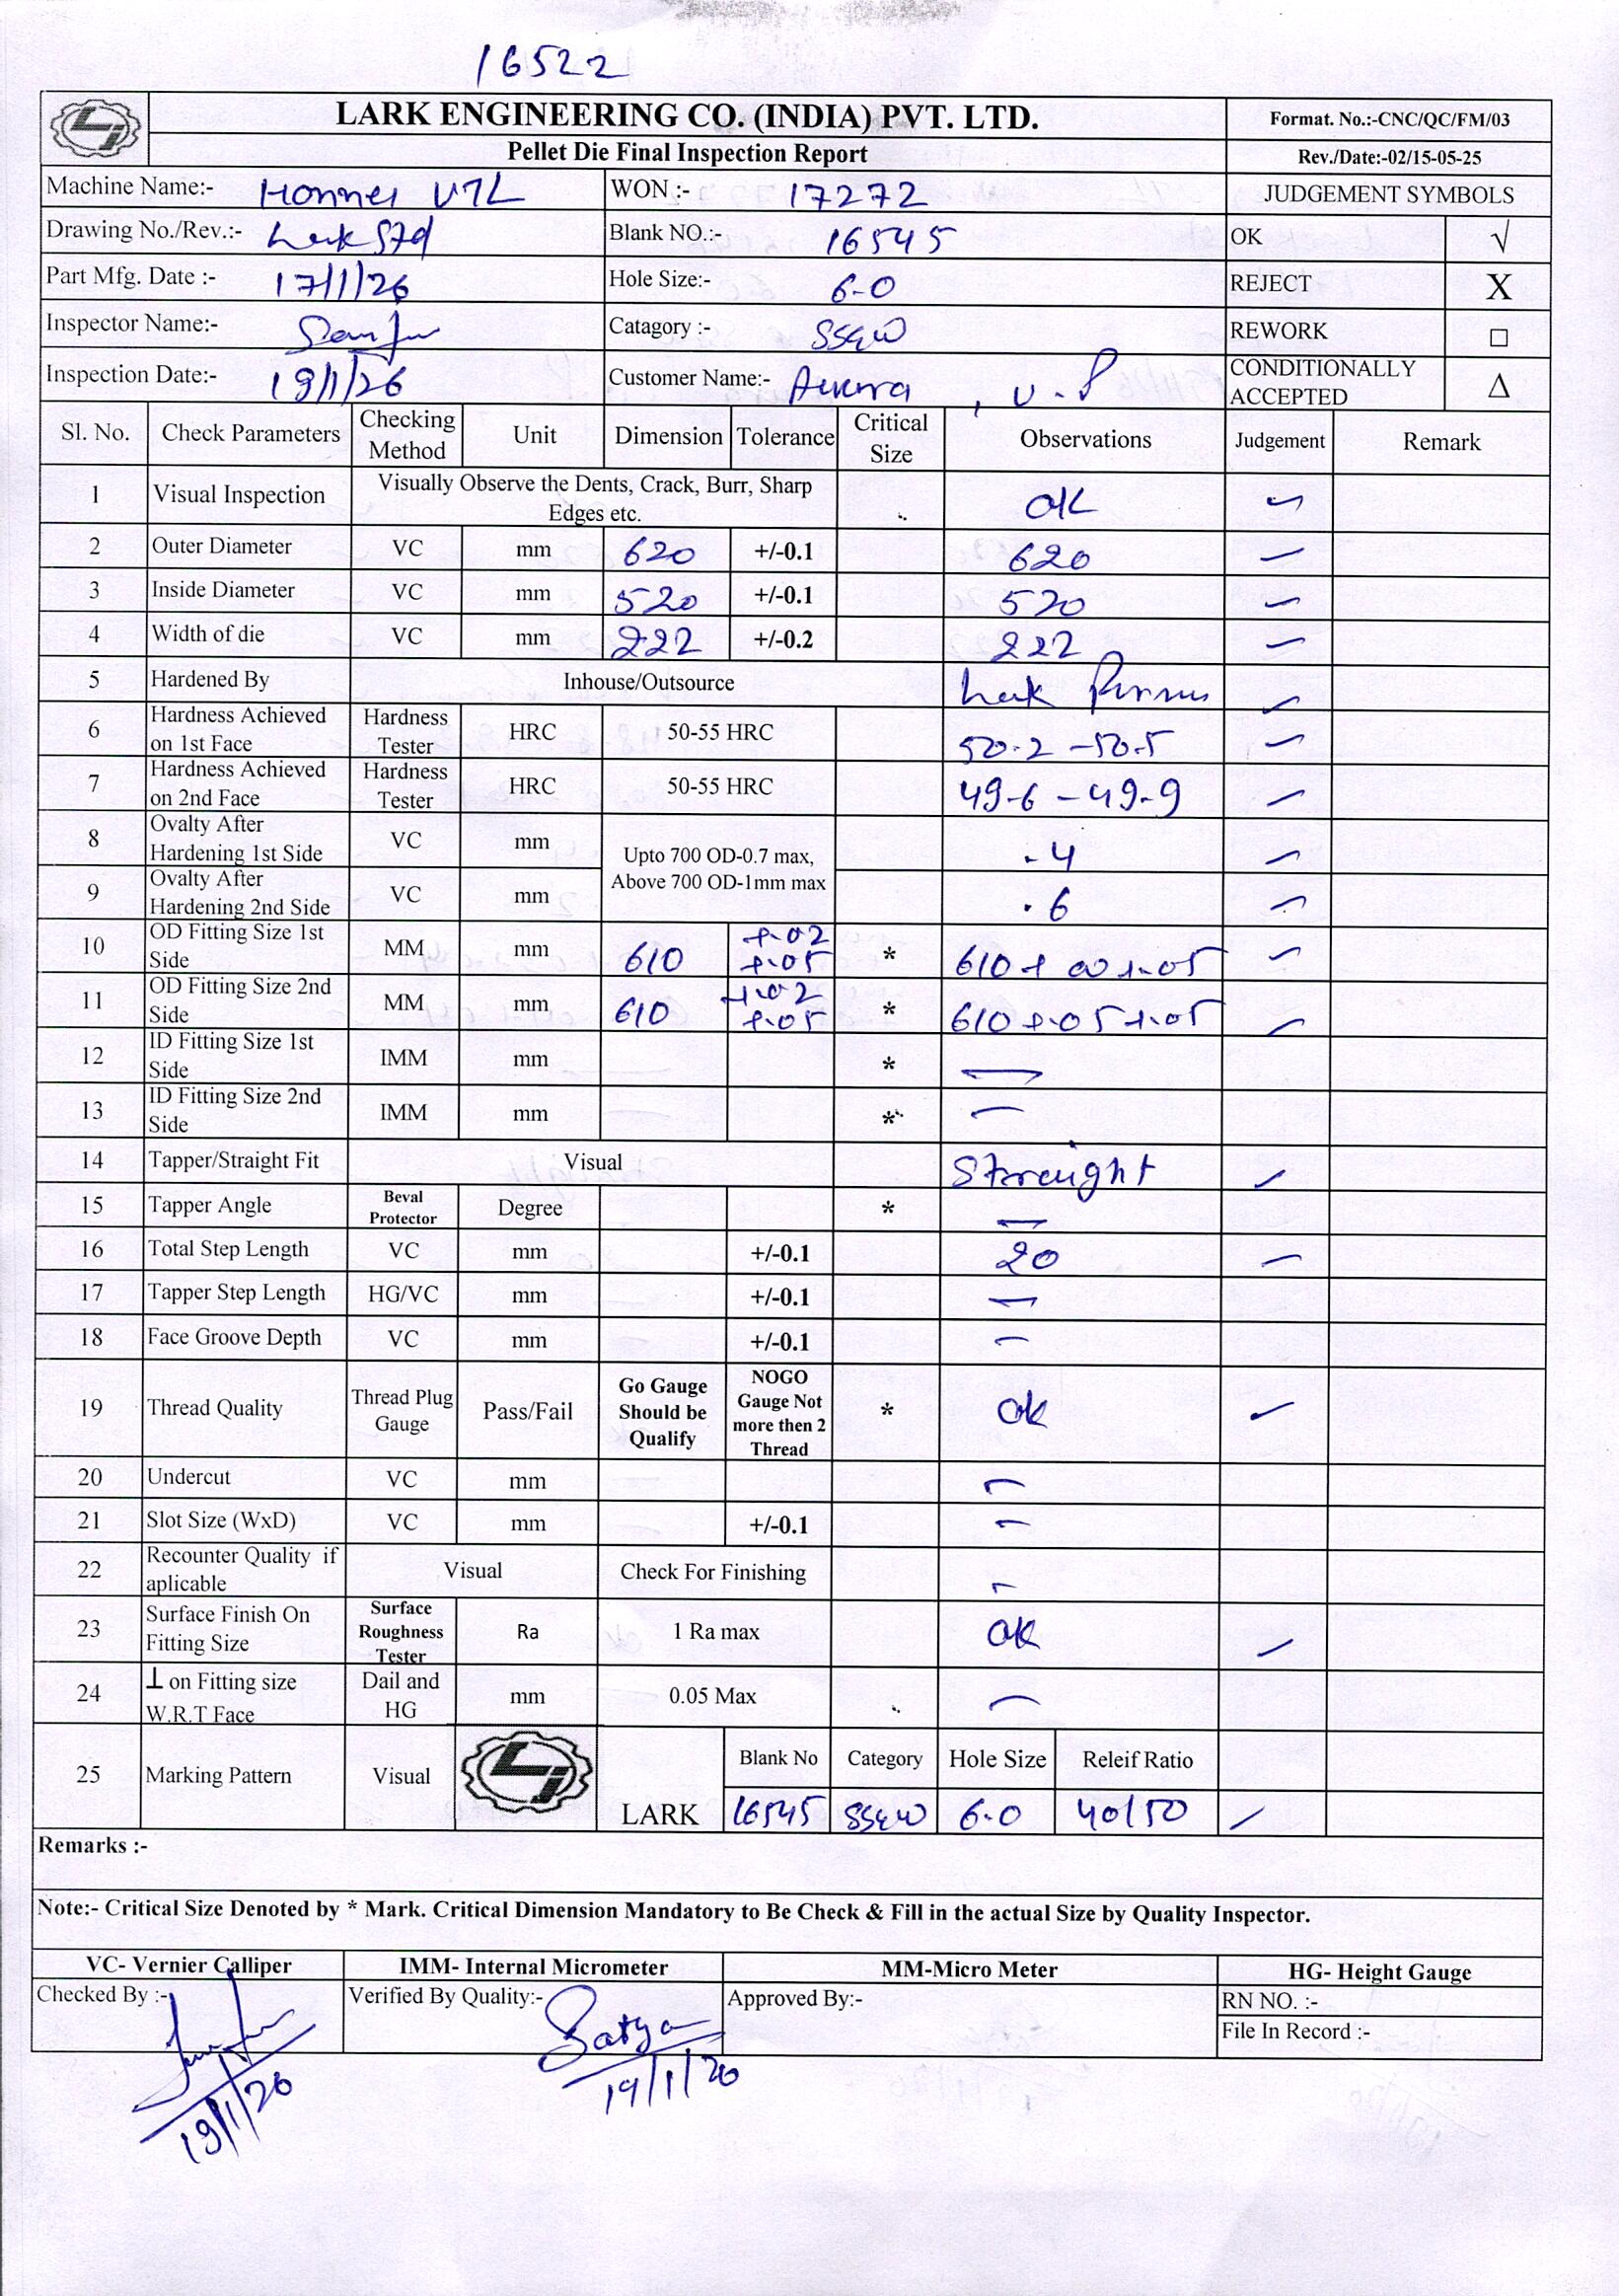 16522
LARK ENGINEERING CO. (INDIA) PVT. LTD.
Format. No.:-CNC/QC/FM/03
Pellet Die Final Inspection Report
Rev./Date:-02/15-05-25
Machine Name:- VTL WON :- 17272 JUDGEMENT SYMBOLS
Drawing No./Rev.:- Lark Std Blank NO.:- 16545 OK √
Part Mfg. Date :- 17/1/26 Hole Size:- 6.0 REJECT X
Inspector Name:- Catagory :- REWORK □
Inspection Date:- 19/1/26 Customer Name:- , U.P CONDITIONALLY ACCEPTED Δ
Sl. No. Check Parameters Checking Method Unit Dimension Tolerance Critical Size Observations Judgement Remark
1 Visual Inspection Visually Observe the Dents, Crack, Burr, Sharp Edges etc. OK
2 Outer Diameter VC mm 620 +/-0.1 620
3 Inside Diameter VC mm 520 +/-0.1 520
4 Width of die VC mm 222 +/-0.2 222
5 Hardened By Inhouse/Outsource Lark
6 Hardness Achieved on 1st Face Hardness Tester HRC 50-55 HRC 50.2 - 50.5
7 Hardness Achieved on 2nd Face Hardness Tester HRC 50-55 HRC 49.6 - 49.9
8 Ovalty After Hardening 1st Side VC mm Upto 700 OD-0.7 max, Above 700 OD-1mm max .4
9 Ovalty After Hardening 2nd Side VC mm .6
10 OD Fitting Size 1st Side MM mm 610 +.02 +.05 * 610 + +.05
11 OD Fitting Size 2nd Side MM mm 610 +.02 +.05 * 610 +.05 +.05
12 ID Fitting Size 1st Side IMM mm * —
13 ID Fitting Size 2nd Side IMM mm * —
14 Tapper/Straight Fit Visual Straight
15 Tapper Angle Beval Protector Degree * —
16 Total Step Length VC mm +/-0.1 20
17 Tapper Step Length HG/VC mm +/-0.1 —
18 Face Groove Depth VC mm +/-0.1 —
19 Thread Quality Thread Plug Gauge Pass/Fail Go Gauge Should be Qualify NOGO Gauge Not more then 2 Thread * Ok
20 Undercut VC mm —
21 Slot Size (WxD) VC mm +/-0.1 —
22 Recounter Quality if aplicable Visual Check For Finishing —
23 Surface Finish On Fitting Size Surface Roughness Tester Ra 1 Ra max OK
24 ⊥ on Fitting size W.R.T Face Dail and HG mm 0.05 Max —
25 Marking Pattern Visual LARK Blank No Category Hole Size Releif Ratio
16545 6.0 40/50
Remarks :-
Note:- Critical Size Denoted by * Mark. Critical Dimension Mandatory to Be Check & Fill in the actual Size by Quality Inspector.
VC- Vernier Calliper IMM- Internal Micrometer MM-Micro Meter HG- Height Gauge
Checked By :- Verified By Quality:- Satya Approved By:- RN NO. :-
File In Record :-
19/1/26 19/1/26